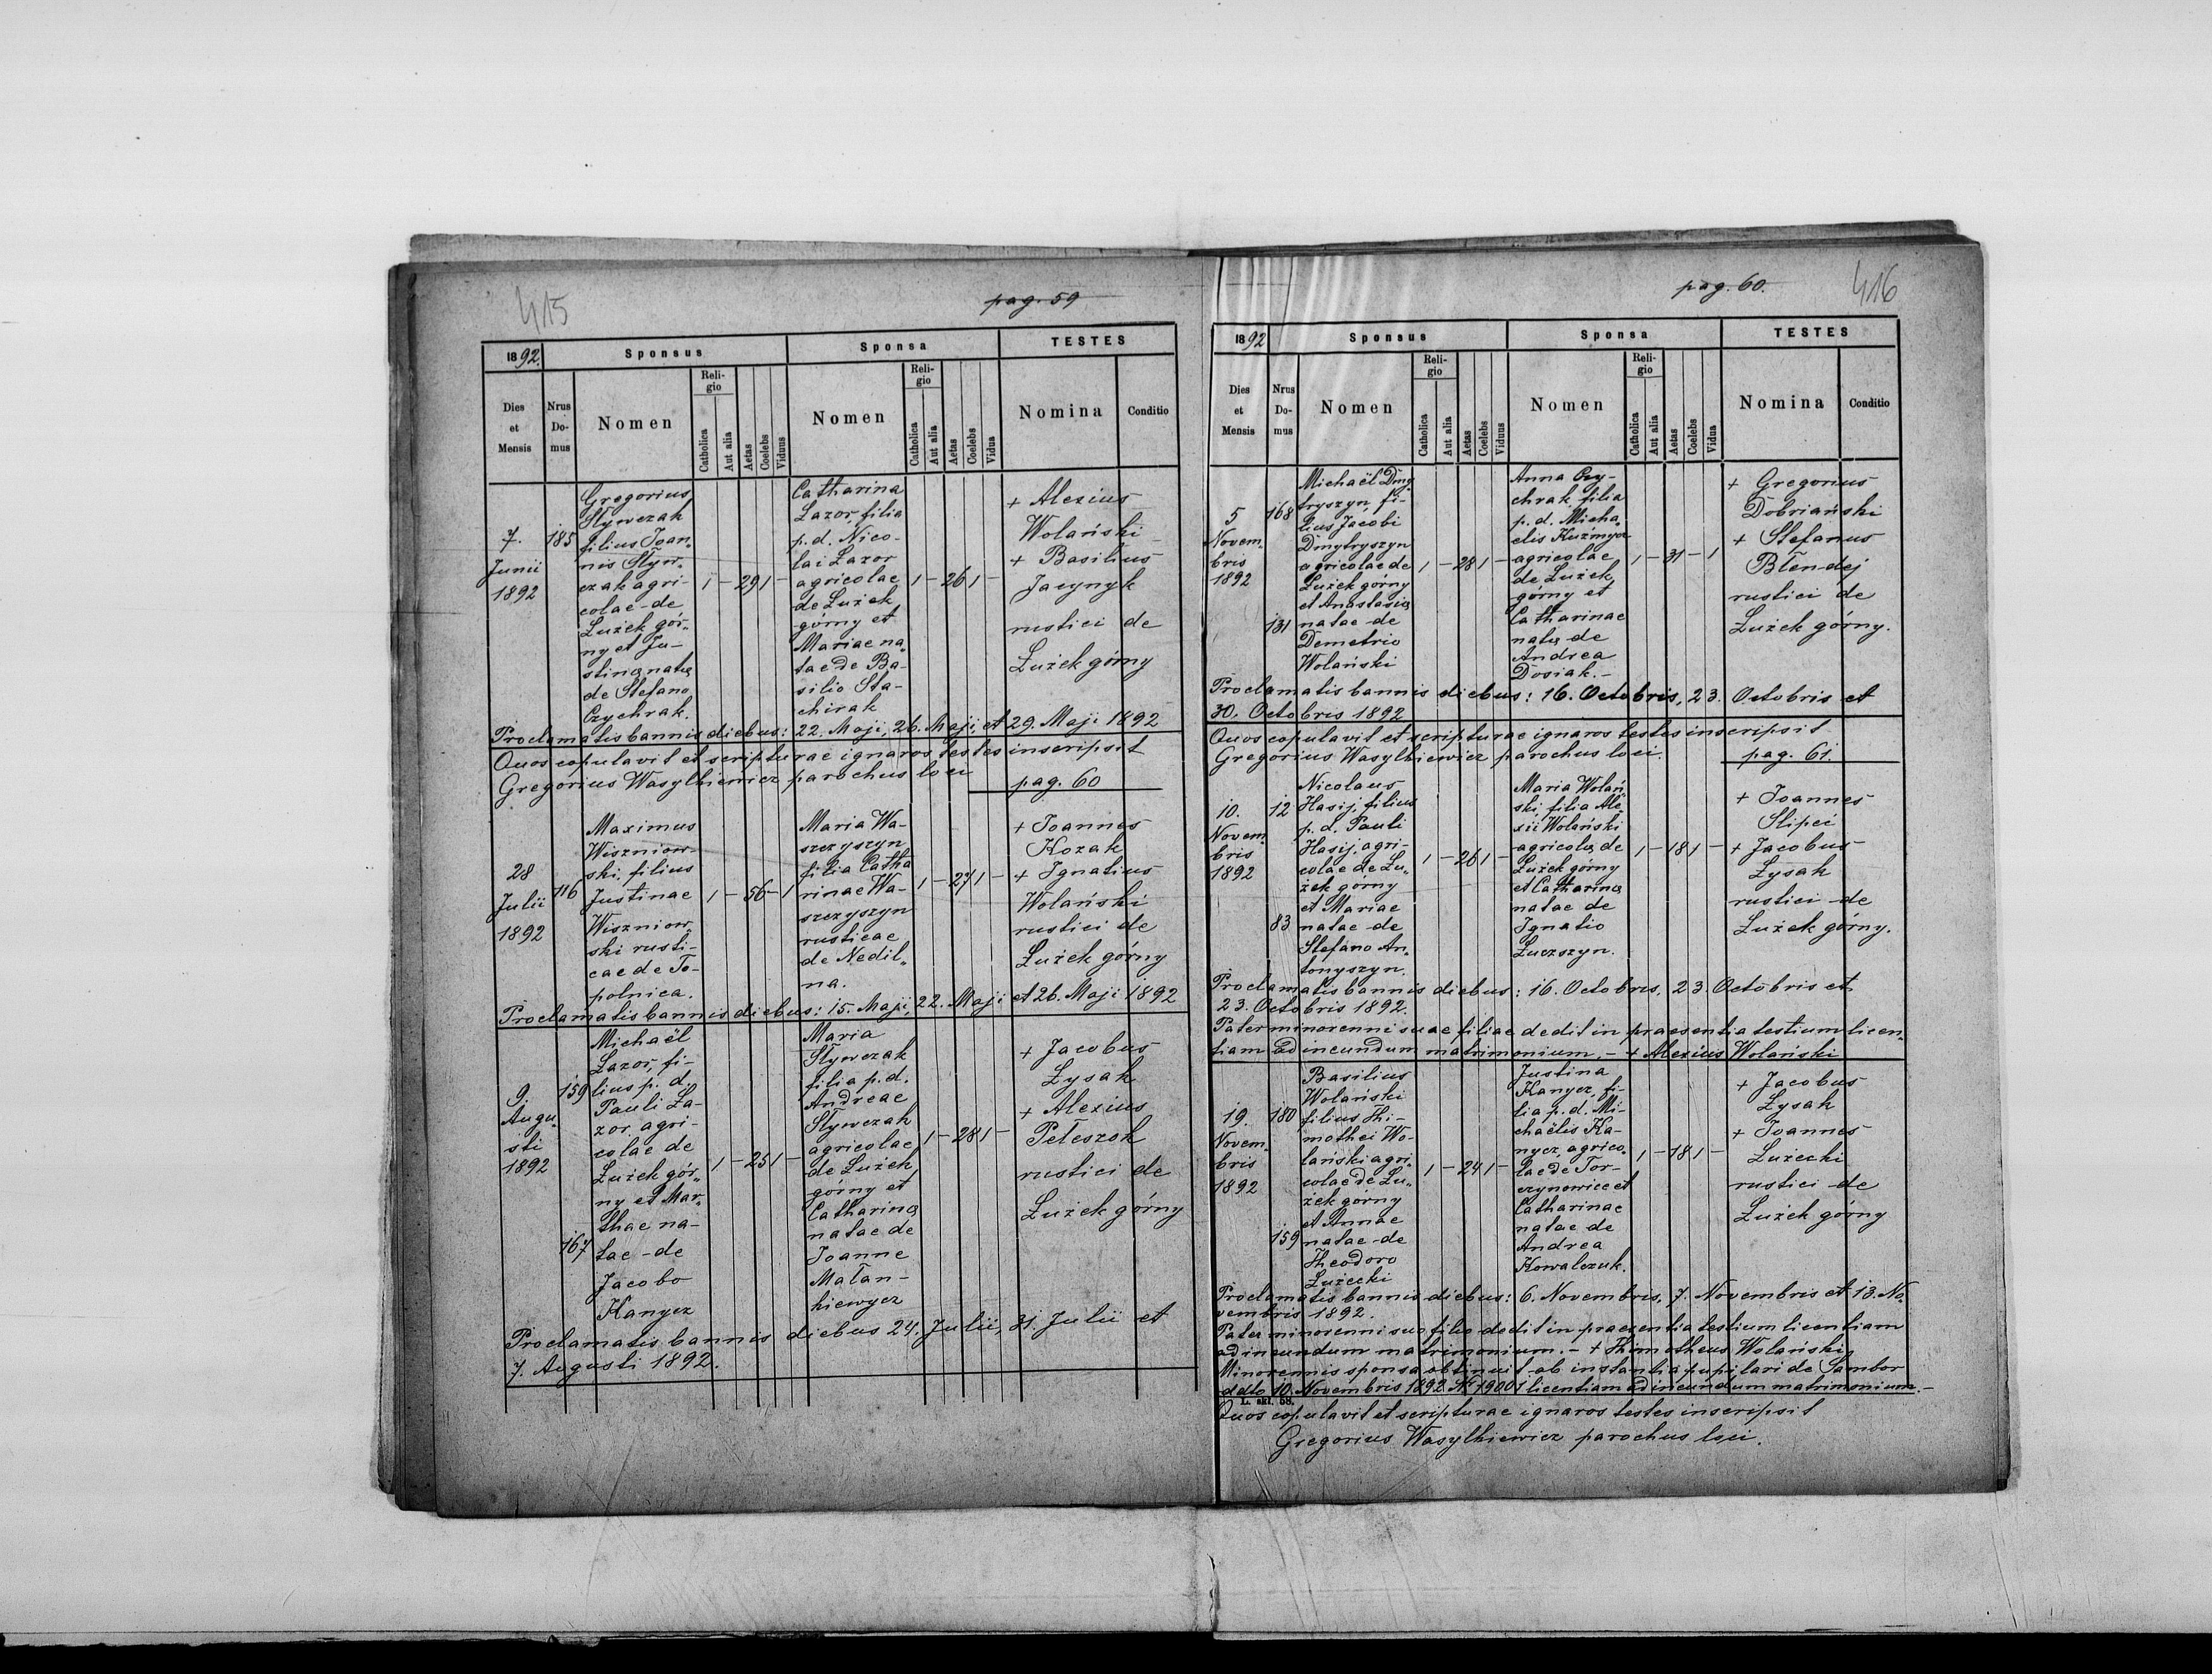 415
pag. 59
1892.
Sponsus
Sponsa
TESTES
Dies et Mensis
Nrus Domus
Nomen
Religio
Catholica
Aut alia
Aetas
Coelebs
Viduus
Nomen
Religio
Catholica
Aut alia
Aetas
Coelebs
Vidua
Nomina
Conditio
7.
Junii
1892
185
Gregorius
Slywczak
filius Joan„
nis Slyw„
czak agri-
colae de
Łużek gór„
ny et Ju-
stina nata
de Stefano
Czychrak.
1 — 29 1 —
Catharina
Łazor, filia
p. d. Nico-
lai Łazor
agricolae
de Łużek
górny et
Mariae na„
tae de Ba-
silio Sta-
chirak
1 — 26 1 —
+ Alexius
Wolański
+ Basilius
Jacynyk
rustici de
Łużek górny
Proclamatis bannis diebus: 22. Maji, 26. Maji, et 29. Maji 1892
Quos copulavit et scripturae ignaros testes inscripsit
Gregorius Wasylkiewicz parochus loci
pag. 60
28
Julii
1892
116
Maximus
Wiszniow-
ski, filius
Justinae
Wiszniow„
ski rusti-
cae de To-
polnica.
1 — 56 — 1
Maria Wa-
szczyszyn
filia Catha
rinae Wa-
szczyszyn
rusticae
de Nedil„
na.
1 — 27 1 —
+ Joannes
Kozak
+ Ignatius
Wolański
rustici de
Łużek górny
Proclamatis bannis diebus: 15. Maji, 22. Maji et 26. Maji 1892
9.
Augu„
sti
1892
159
167
Michaël
Łazor, fi-
lius p. d.
Pauli Ła-
zor agri-
colae de
Łużek gór„
ny et Mar„
thae na-
tae de
Jacobo
Kanycz
1 — 25 1 —
Maria
Slywczak
filia p. d.
Andreae
Slywczak
agricolae
de Łużek
górny et
Catharina
natae de
Joanne
Małan-
kiewycz
1 — 28 1 —
+ Jacobus
Łysak
+ Alexius
Peteszok
rustici de
Łużek górny
Proclamatis bannis diebus 24. Julii, 31. Julii et
7. Augusti 1892.
pag. 60.
416
1892
Sponsus
Sponsa
TESTES
Dies et Mensis
Nrus Domus
Nomen
Religio
Catholica
Aut alia
Aetas
Coelebs
Viduus
Nomen
Religio
Catholica
Aut alia
Aetas
Coelebs
Vidua
Nomina
Conditio
5
Novem„
bris
1892
168
131
Michaël Dmy
tryszyn, fi-
lius Jacobi
Dmytryszyn
agricolae de
Łużek górny
et Anastasia
natae de
Demetrio
Wolański
1 — 28 1 —
Anna Czy-
chrak filia
p. d. Micha„
elis Kuźmycz
agricolae
de Łużek
górny et
Catharinae
nata de
Andrea
Dosiak.-
1 — 31 — 1
+ Gregorius
Dobriański
+ Stefanus
Błendej
rustici de
Łużek górny.
Proclamatis bannis diebus: 16. Octobris, 23. Octobris et
30. Octobris 1892
Quos copulavit et scripturae ignaros testes inscripsit
Gregorius Wasylkiewicz parochus loci.
pag. 61.
10.
Novem„
bris
1892
12
83
Nicolaus
Hasij, filius
p. d. Pauli
Hasij, agri-
colae de Łu„
żek górny
et Mariae
natae de
Stefano An„
tonyszyn.
1 — 26 1 —
Maria Wolań„
ski, filia Ale„
xii Wolański
agricola de
Łużek górny
et Catharina
natae de
Ignatio
Łuczszyn.
1 — 18 1 —
+ Joannes
Slipci
+ Jacobus
Łysak
rustici de
Łużek górny.
Proclamatis bannis diebus: 16. Octobris, 23. Octobris et
23. Octobris 1892.
Pater minorenni suae filiae dedit in praesentia testium licen„
tiam ad ineundum matrimonium. - + Alexius Wolański
19.
Novem„
bris
1892
180
159
Basilius
Wolański
filius Thi-
mothei Wo-
lański agri„
colae de Łu„
żek górny
et Annae
natae de
Theodoro
Łużecki
1 — 24 1 —
Justina
Kanycz, fi-
lia p. d. Mi-
chaëlis Ka-
nycz, agrico„
lae de Tor-
czynowice et
Catharinae
natae de
Andrea
Kowalczuk.
1 — 18 1 —
+ Jacobus
Łysak
+ Joannes
Łużecki
rustici de
Łużek górny
Proclamatis bannis diebus: 6. Novembris, 7. Novembris et 13. No„
vembris 1892.
Pater minorenni suo filio dedit in praesentia testium licentiam
ad ineundum matrimonium. - + Thimotheus Wolański.
Minorennis sponsa obtinuit ab instantia pupilari de Sambor
ddto 10. Novembris 1892 № 19001 licentiam ad ineundum matrimonium.-
L. skł. 58.
Quos copulavit et scripturae ignaros testes inscripsit
Gregorius Wasylkiewicz parochus loci.